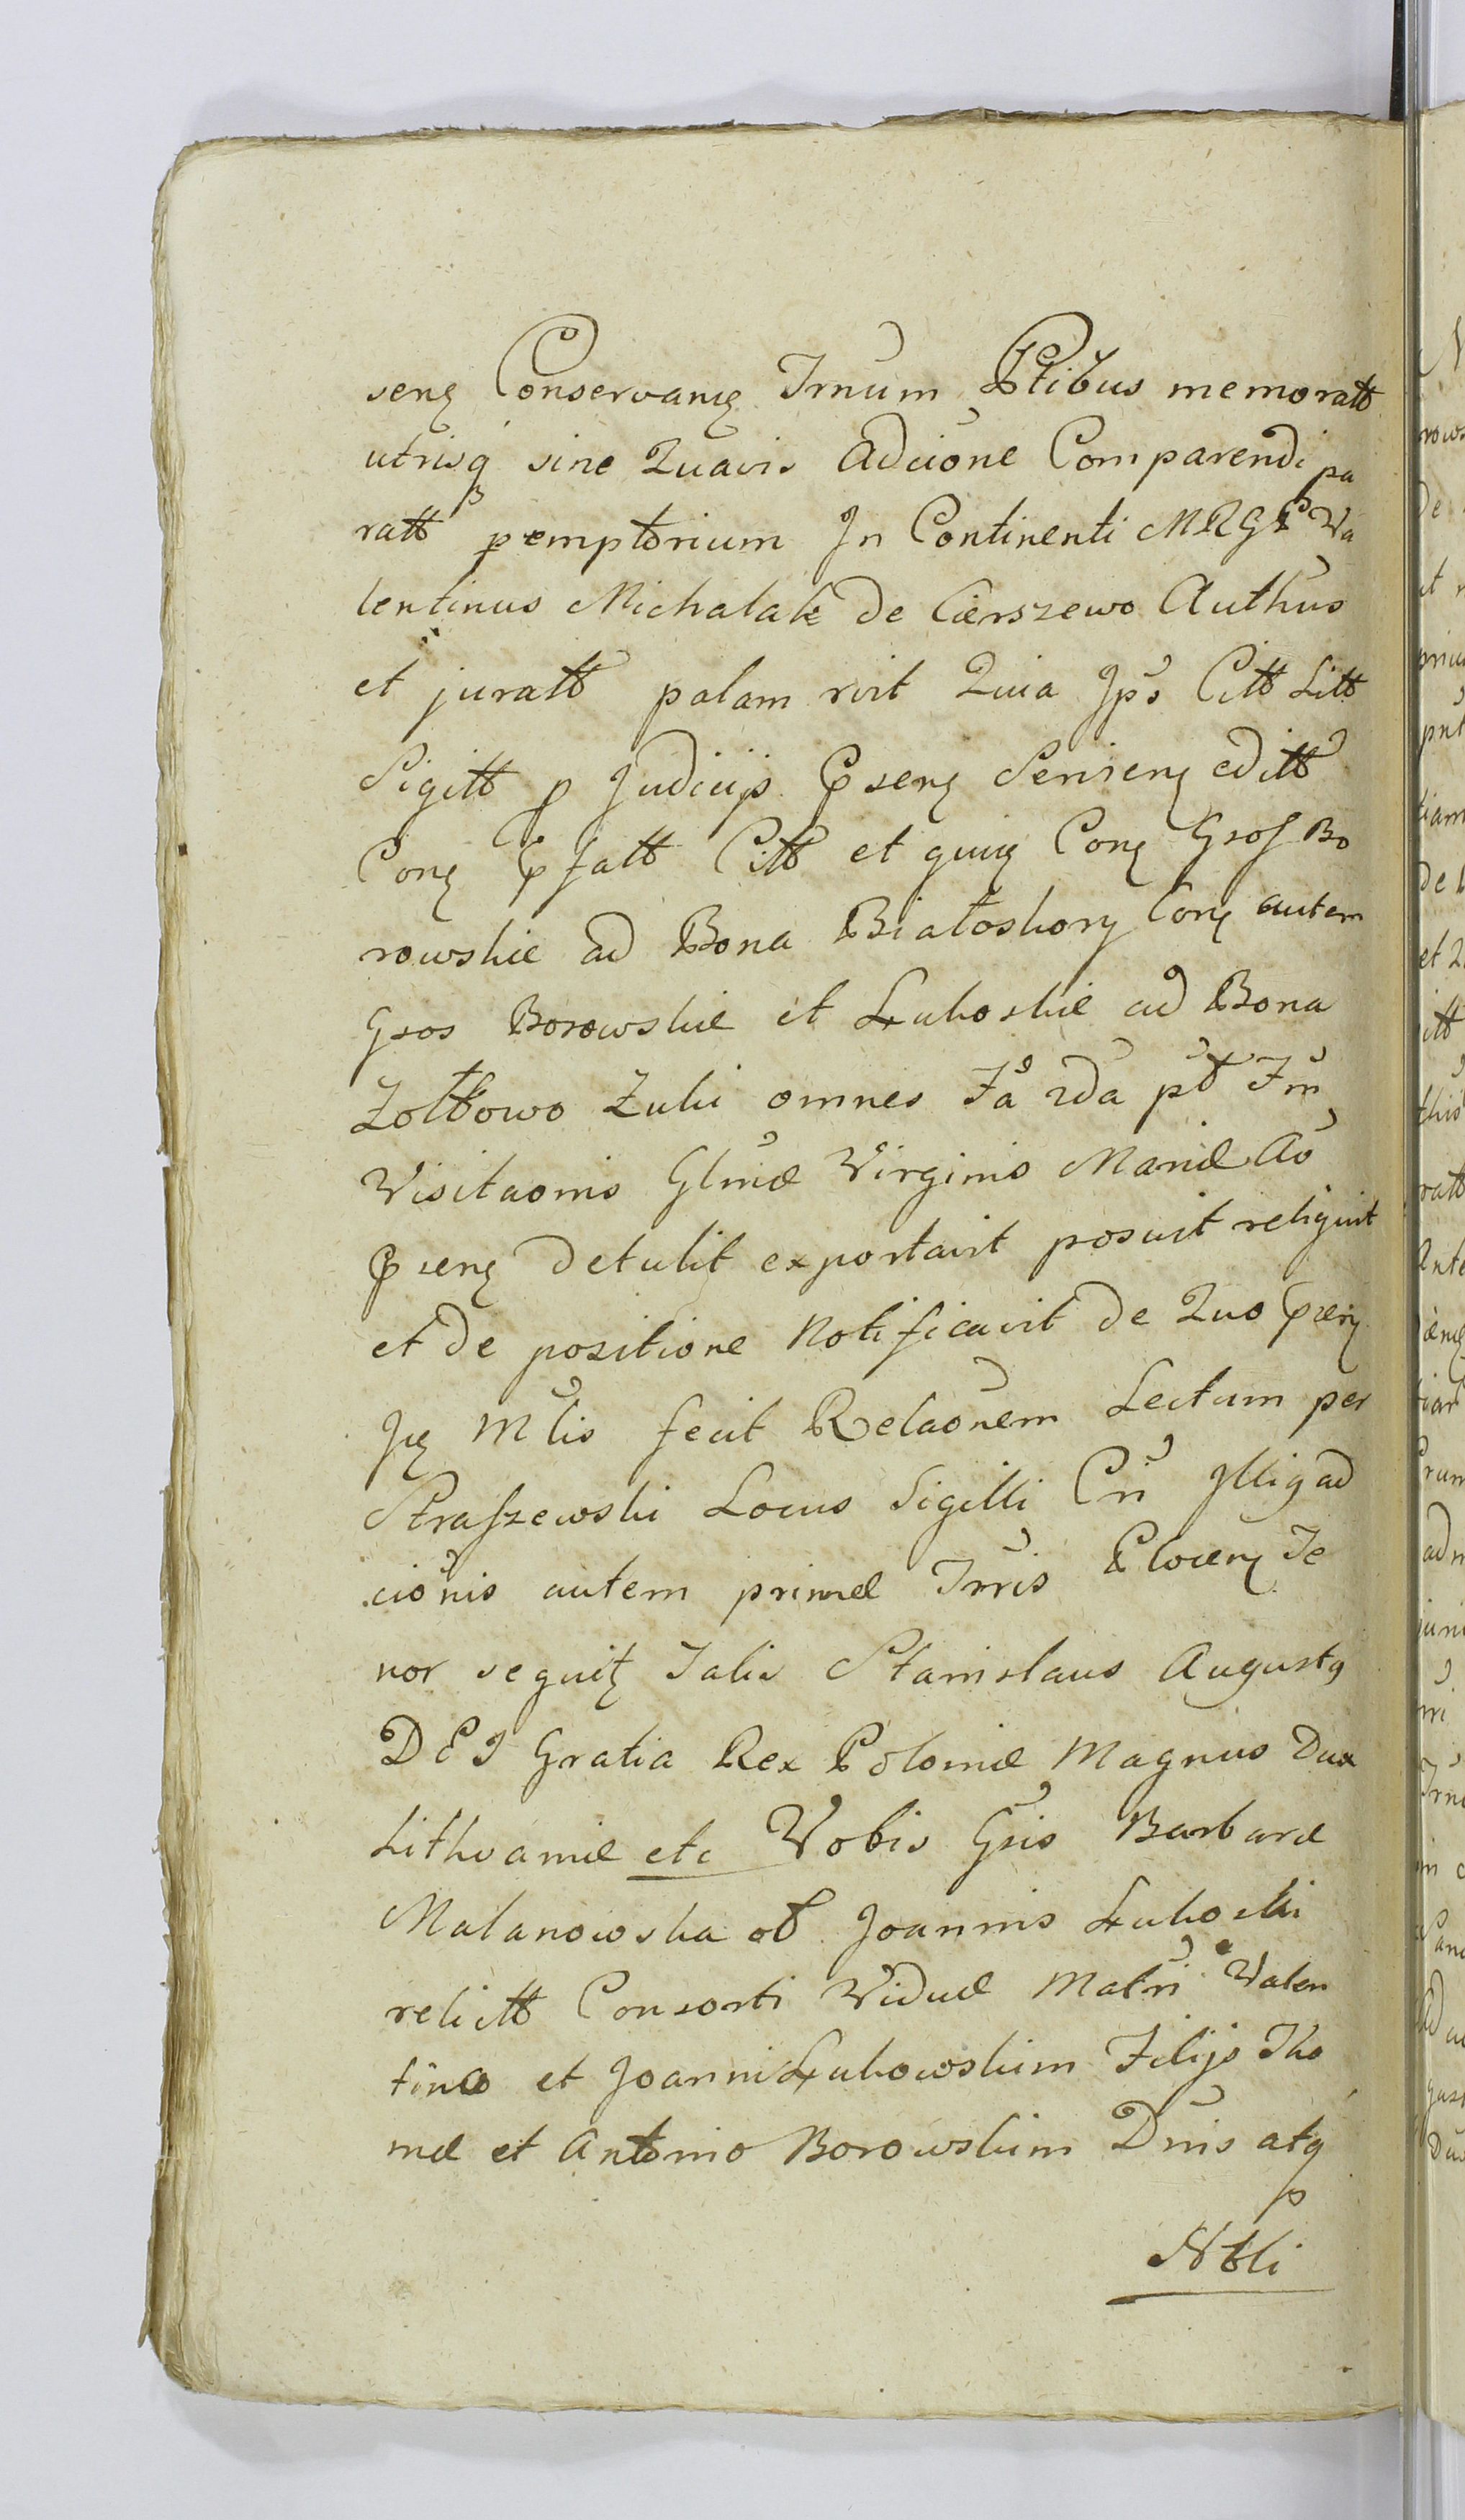 senꝫ Conservanꝫ Trnum Ptibus memoratt
utrisq sine Quavis Adcione Comparendi pa
ratt pemptorium In Continenti MRGP Va
lentinus Michalak de Cierszewo Authus
et juratt palam rvit Quia Jps Citt Litt
Sigitt p Judicijs Psenꝫ Senienꝫ editt
Conꝫ Pfatt Citt et quiꝫ Conꝫ Gsos Bo
rowskie ad Bona Białoskory Conꝫ autem
Gsos Borowskie et Łukoskie ad Bona
Zołtowo Zuki omnes Fa 2da pt Fm
Visitaonis Glmæ Virginis Mariæ Ao
Psenꝫ detulit exportavit posuit reliquit
et de positione Notificavit de Quo Psenꝫ
Jꝫ Mlis fecit Relaonem Lectum per
Straszewski Locus Sigilli Cri Illig ad
cionis autem primæ Trris Ploceꝫ Te
nor sequitꝫ Talis Stanislaus Augustq
DEI Gratia Rex Poloniæ Magnus Dux
Lithvaniæ etc Vobis Gsis Barbaræ
Malanowska ot Joannis Łukoski
relictt Consorti Viduæ Matri Valen
tino et Joanni Łukowskim Filijs Tho
mæ et Antonio Borowskim Dnis atq
Ntli